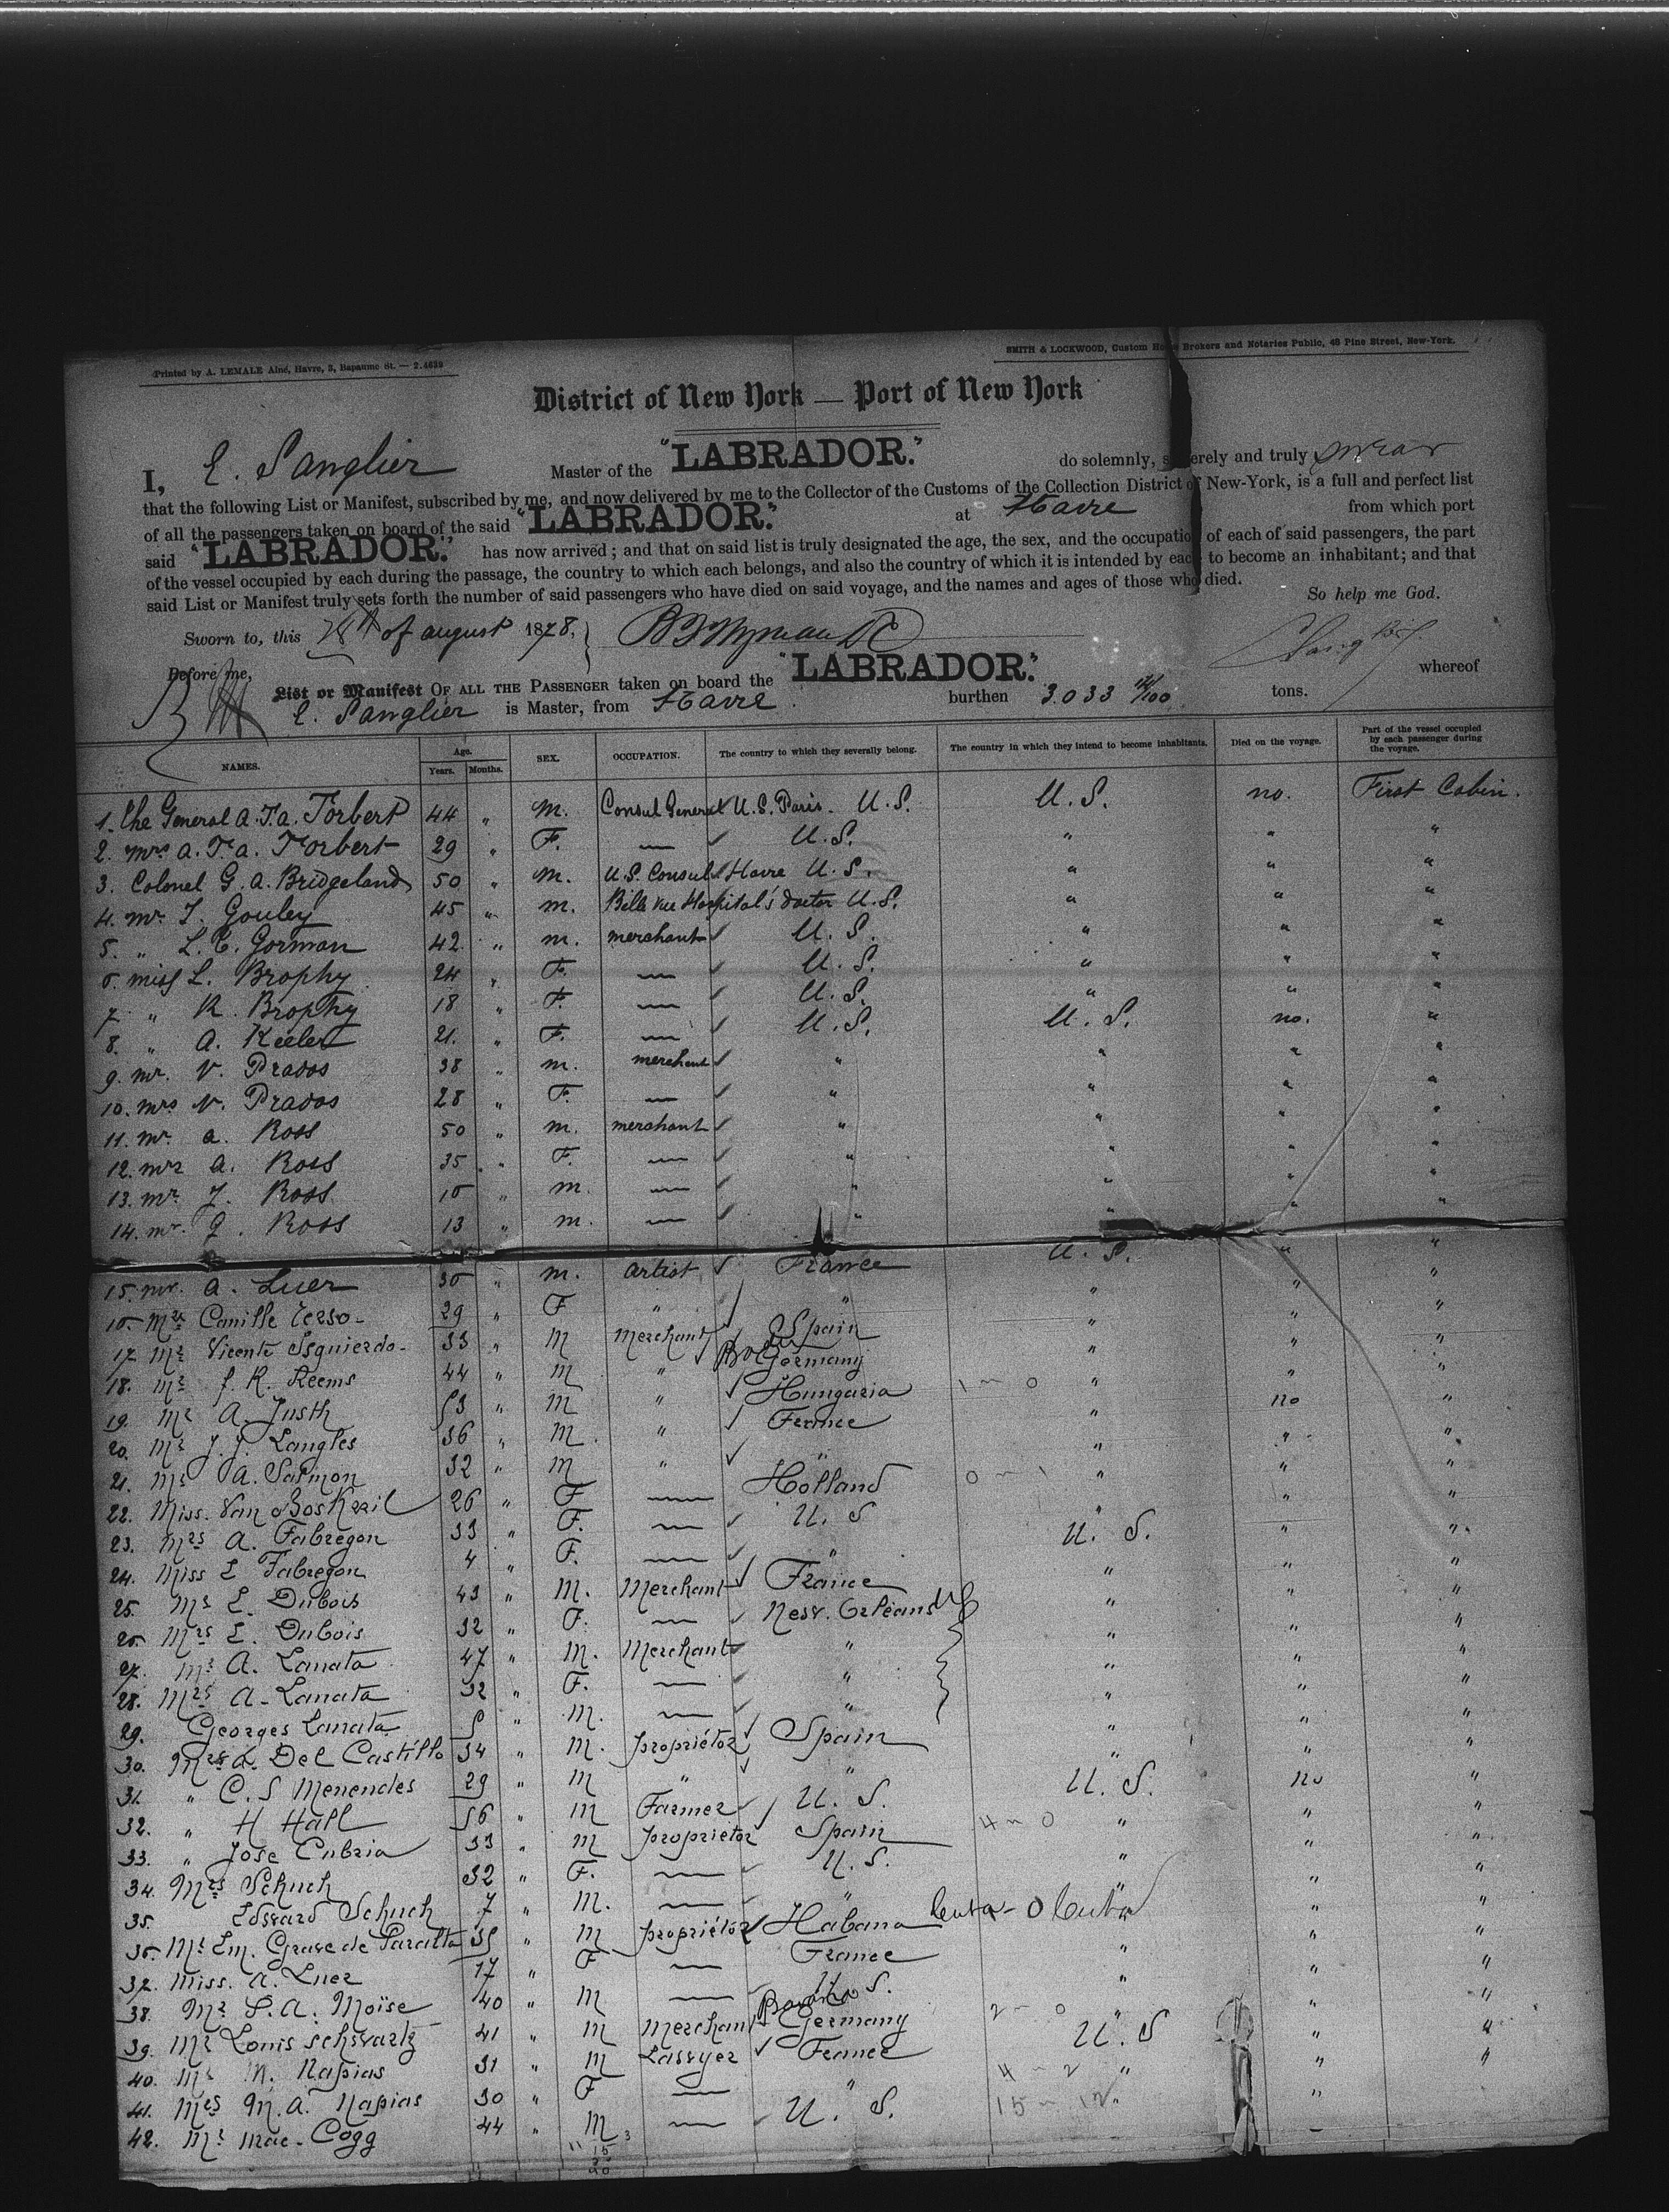 Printed by A. LEMALE Aîné, Havre, 3, Bapaume St. — 2.4639
SMITH & LOCKWOOD, Custom Brokers and Notaries Public, 48 Pine Street, New-York.
District of New York — Port of New York
I, E. Sanglier Master of the "LABRADOR." do solemnly, erely and truly swear
that the following List or Manifest, subscribed by me, and now delivered by me to the Collector of the Customs of the Collection District of New-York, is a full and perfect list
of all the passengers taken on board of the said "LABRADOR." at Havre from which port
said "LABRADOR." has now arrived; and that on said list is truly designated the age, the sex, and the occupatio of each of said passengers, the part
of the vessel occupied by each during the passage, the country to which each belongs, and also the country of which it is intended by eac to become an inhabitant; and that
said List or Manifest truly sets forth the number of said passengers who have died on said voyage, and the names and ages of those who died.
So help me God.
Sworn to, this 28th of august 1878,
Before me,
List or Manifest OF ALL THE PASSENGER taken on board the "LABRADOR." whereof
E. Sanglier is Master, from Havre burthen 3.033 /100 tons.
NAMES. Age. Years. Months. SEX. OCCUPATION. The country to which they severally belong. The country in which they intend to become inhabitants. Died on the voyage. Part of the vessel occupied by each passenger during the voyage.
1. The General A.T.A. Torbert 44 " M. Consul General U.S. Paris. U.S. U.S. no. First Cabin.
2. Mrs A.T.A. Torbert 29 " F. — U.S. " " "
3. Colonel G. A. Bridgeland 50 " M. U.S. Consul Havre U.S. " " "
4. Mr. J. Gouley 45 " M. Belle Vue Hospital's doctor U.S. " " "
5. " L. C. Gorman 42 " M. merchant U.S. " " "
6. Miss L. Brophy 24 " F. — U.S. " " "
7. " K. Brophy 18 " F. — U.S. " " "
8. " A. Keeler 21. " F. — U.S. U.S. no. "
9. Mr. V. Prados 38 " M. merchant " " " "
10. Mrs V. Prados 28 " F. — " " " "
11. Mr. A. Ross 50 " M. merchant " " " "
12. Mrs A. Ross 35 " F. — " " " "
13. Mr. J. Ross 16 " M. — " " " "
14. Mr. G. Ross 13 " M. — " " " "
15. Mr. A. Luer 30 " M. Artist France U.S. " "
16. Mrs Camille Urso 29 " F " " " " "
17. Mr Vicente Isquierdo 33 " M Merchant Spain " " "
18. Mr J. R. Reems 44 " M " Germany " " "
19. Mr A. Justh 53 " M " Hungaria 1 - 0 " no "
20. Mr J. J. Langles 36 " M. " France " " "
21. Mr A. Salmon 32 " M " " " " "
22. Miss. Van Boskeril 26 " F — Holland 0 - 1 " " "
23. Mrs A. Fabregon 33 " F. — U.S U.S. " "
24. Miss L Fabregon 4 " F. — " " " "
25. Mr E. Dubois 43 " M. Merchant France " " "
26. Mrs E. Dubois 32 " F. — New. Orleans US " " "
27. Mr A. Lanata 47 " M. Merchant " " " "
28. Mrs A. Lanata 32 " F. — " " " "
29. Georges Lanata 5 " M. — " " " "
30. Mr A. Del Castillo 34 " M. propriétor Spain " " "
31. " C. S Menendes 29 " M " " U.S. no "
32. " H Hall 56 " M Farmer U.S. " " "
33. " Jose Cubria 33 " M proprietor Spain 4 - 0 " " "
34. Mrs Schuch 32 " F. — U.S. " " "
35. Edward Schuch 7 " M. — " " " "
36. Mr Em. Grave de Paralta 35 " M propriétor Habana Cuba - 0 Cuba " "
37. Miss. A. Luer 17 " F — France " " "
38. Mr S.A. Moïse 40 " M — U.S. " " "
39. Mr Louis Schwartz 41 " M Merchant Bavaria Germany 2 - 0 U.S " "
40. Mr N. Napias 31 " M Lawyer France 4 - 2 " " "
41. Mrs M.A. Napias 30 " F — " 15 - 12 " "
42. Mr Mac-Cogg 44 " M — U.S.